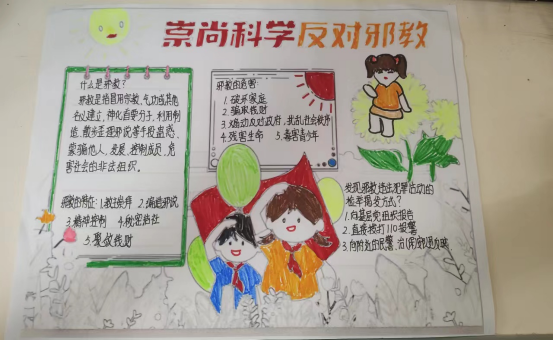 崇尚科学反对邪教
什么是邪教?
邪教是指冒用宗教、气功或其他
名义建立,神化首要分子,利用制
造、散步歪理邪说等手段蛊惑、
蒙骗他人,发展、控制成员,危
害社会的非法组织。
邪教的特征:1.教主崇拜 2.编造邪说
3.精神控制 4.秘密结社
5.聚敛钱财
邪教的危害:
1.破坏家庭
2.骗取钱财
3.煽动反对政府,扰乱社会秩序
4.残害生命 5.毒害青少年
发现邪教违法犯罪活动的
检举揭发方法?
1.向基层党组织报告
2.直接拨打110报警
3.向附近的民警、治